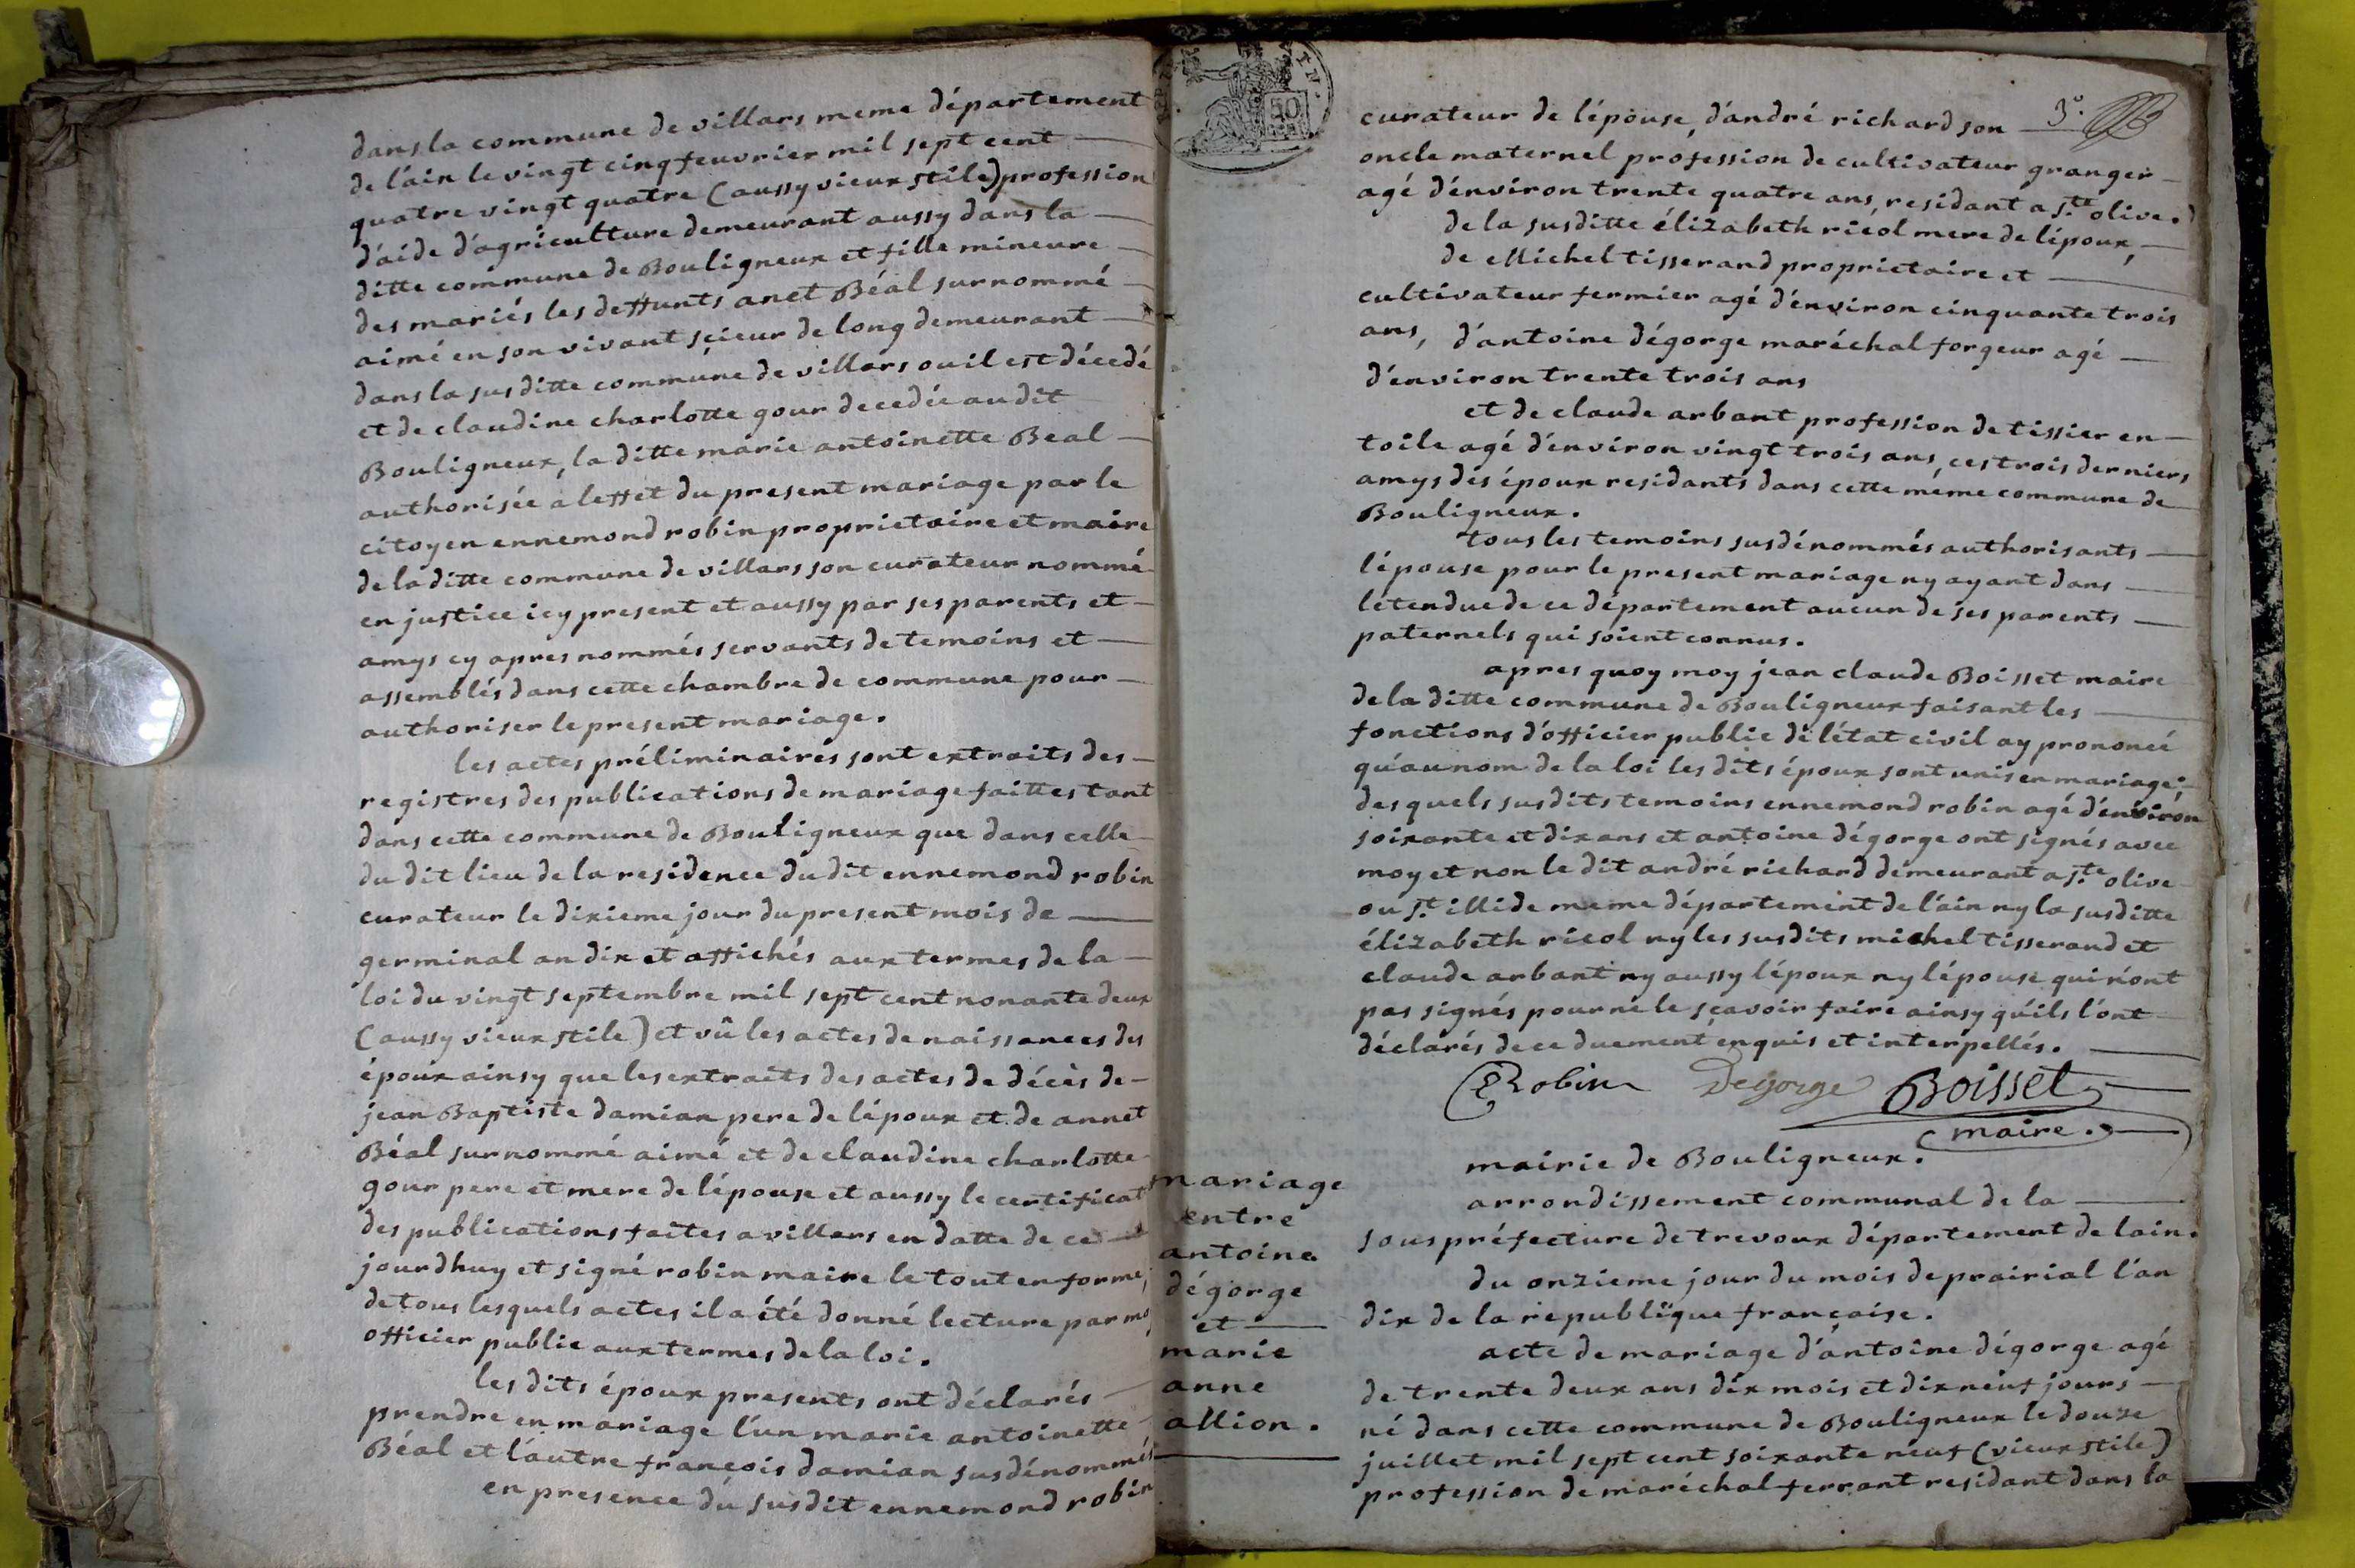 dans la commune de villars meme département
de l'ain le vingt cinq feuvrier mil sept cent
quatre vingt quatre (aussy vieux stile) profession
d'aide d'agriculture demeurant aussy dans la
ditte commune de Bouligneux et fille mineure
des mariés les deffunts anet Béal surnommé
aimé en son vivant sçieur de long demeurant
dans la sus ditte commune de villars ou il est décedé
et de claudine charlotte gour decedée au dit
Bouligneux, la ditte marie antoinette Beal
authorisée a leffet du present mariage par le
citoyen ennemond robin proprietaire et maire
de la ditte commune de villars son curateur nommé
en justice icy present et aussy par ses parents et
amys cy apres nommés servants de temoins et
assemblés dans cette chambre de commune pour
authoriser le present mariage.
les actes préliminaires sont extraits des
registres des publications de mariage faittes tant
dans cette commune de Bouligneux que dans celle
du dit lieu de la residence du dit ennemond robin
curateur le dixieme jour du present mois de
germinal an dix et affichés aux termes de la
loi du vingt septembre mil sept cent nonante deux
(aussy vieux stile) et vû les actes de naissances des
époux ainsy que les extraits des actes de décès de
jean Baptiste damian pere de l'époux et de annet
Béal surnommé aimé et de claudine charlotte
gour pere et mere de l'épouse et aussy le certificat
des publications faites a villars en datte de ce
jourdhuy et signé robin maire le tout en forme,
de tous lesquels actes il a été donné lecture par moy
officier public aux termes de la loi.
les dits époux presents ont déclarés
prendre en mariage l'un marie antoinette
Béal et l'autre françois damian susdénommés
en presence du susdit ennemond robin
3e.
curateur de l'épouse, d'andré richard son
oncle maternel profession de cultivateur granger
agé d'énviron trente quatre ans, residant a Ste. olive.
de la susditte élizabeth ricol mere de l'époux,
de Michel tisserand proprietaire et
cultivateur fermier agé d'énviron cinquante trois
ans, d'antoine dégorge maréchal forgeur agé
d'énviron trente trois ans
et de claude arbant profession de tissier en
toile agé d'énviron vingt trois ans, ces trois derniers
amys des époux residants dans cette même commune de
Bouligneux.
tous les temoins susdénommés authorisants
l'épouse pour le present mariage ny ayant dans
létendue de ce département aucun de ses parents
paternels qui soient connus.
apres quoy moy jean claude Boisset maire
de la ditte commune de Bouligneux faisant les
fonctions d'officier public de l'état civil ay prononcé
qu'au nom de la loi les dits époux sont unis en mariage;
des quels susdits temoins ennemond robin agé d'énviron
soixante et dix ans et antoine dégorge ont signés avec
moy et non le dit andré richard demeurant a Ste. olive
ou St. illide meme département de l'ain ny la susditte
élizabeth ricol ny les susdits michel tisserand et
claude arbant ny aussy l'époux ny l'épouse qui n'ont
pas signés pour ne le sçavoir faire ainsy qu'ils l'ont
déclarés de ce duement enquis et interpellés.
ERobin Degorge Boisset
maire.
mairie de Bouligneux.
arrondissement communal de la
sous préfecture de trevoux département de lain.
mariage
entre
antoine
dégorge
et
marie
anne
allion.
du onzieme jour du mois de prairial l'an
dix de la republique française.
acte de mariage d'antoine dégorge agé
de trente deux ans dix mois et dix neuf jours
né dans cette commune de Bouligneux le douze
juillet mil sept cent soixante neuf (vieux stile)
profession de maréchal ferrant residant dans la